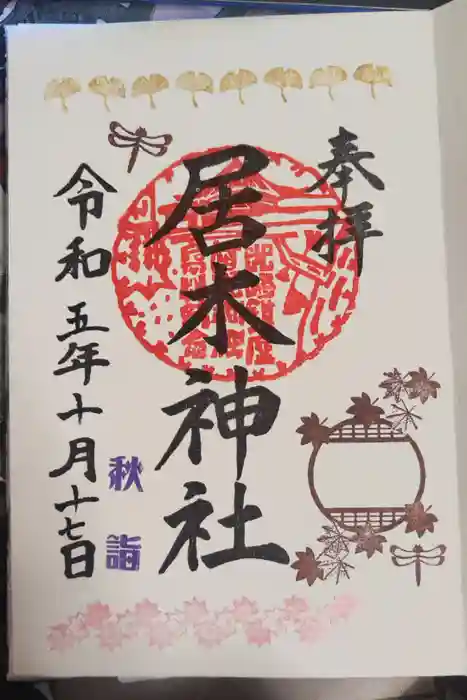 奉拝
居木神社
秋詣
令和五年十月十七日